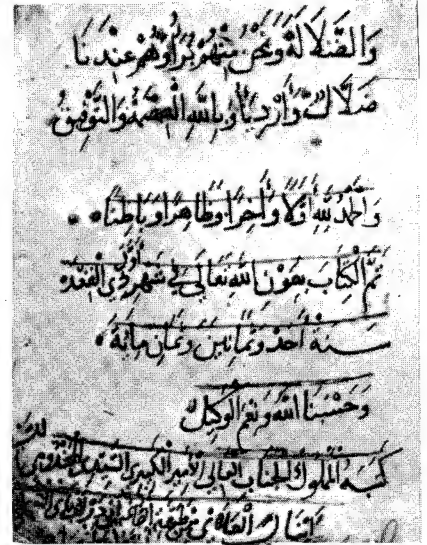 وَالضَّلَالَةُ وَنَحْنُ مِنْهُمْ بُرَآءُ وَهُمْ عِنْدَنَا
ضُلَّالٌ وَأَرْدِيَاءُ وَبِاللَّهِ الْعِصْمَةُ وَالتَّوْفِيقُ
وَالْحَمْدُ لِلَّهِ أَوَّلًا وَآخِرًا وَظَاهِرًا وَبَاطِنًا
تَمَّ الْكِتَابَ بِعَوْنِ اللَّهِ تَعَالَى فِي أَوَّلِ شَهْرِ ذِي الْقِعْدَه
سَنَةَ أَحَدْ وَثَمَانِينَ وَثَمَانِ مِائَةٍ
وَحَسْبُنَا اللَّهُ وَنِعْمَ الْوَكِيلُ
كتبه المملوك الجناب العالي الأمير الكبيري السيدي المخدومي
اينال العلائي من طبقة